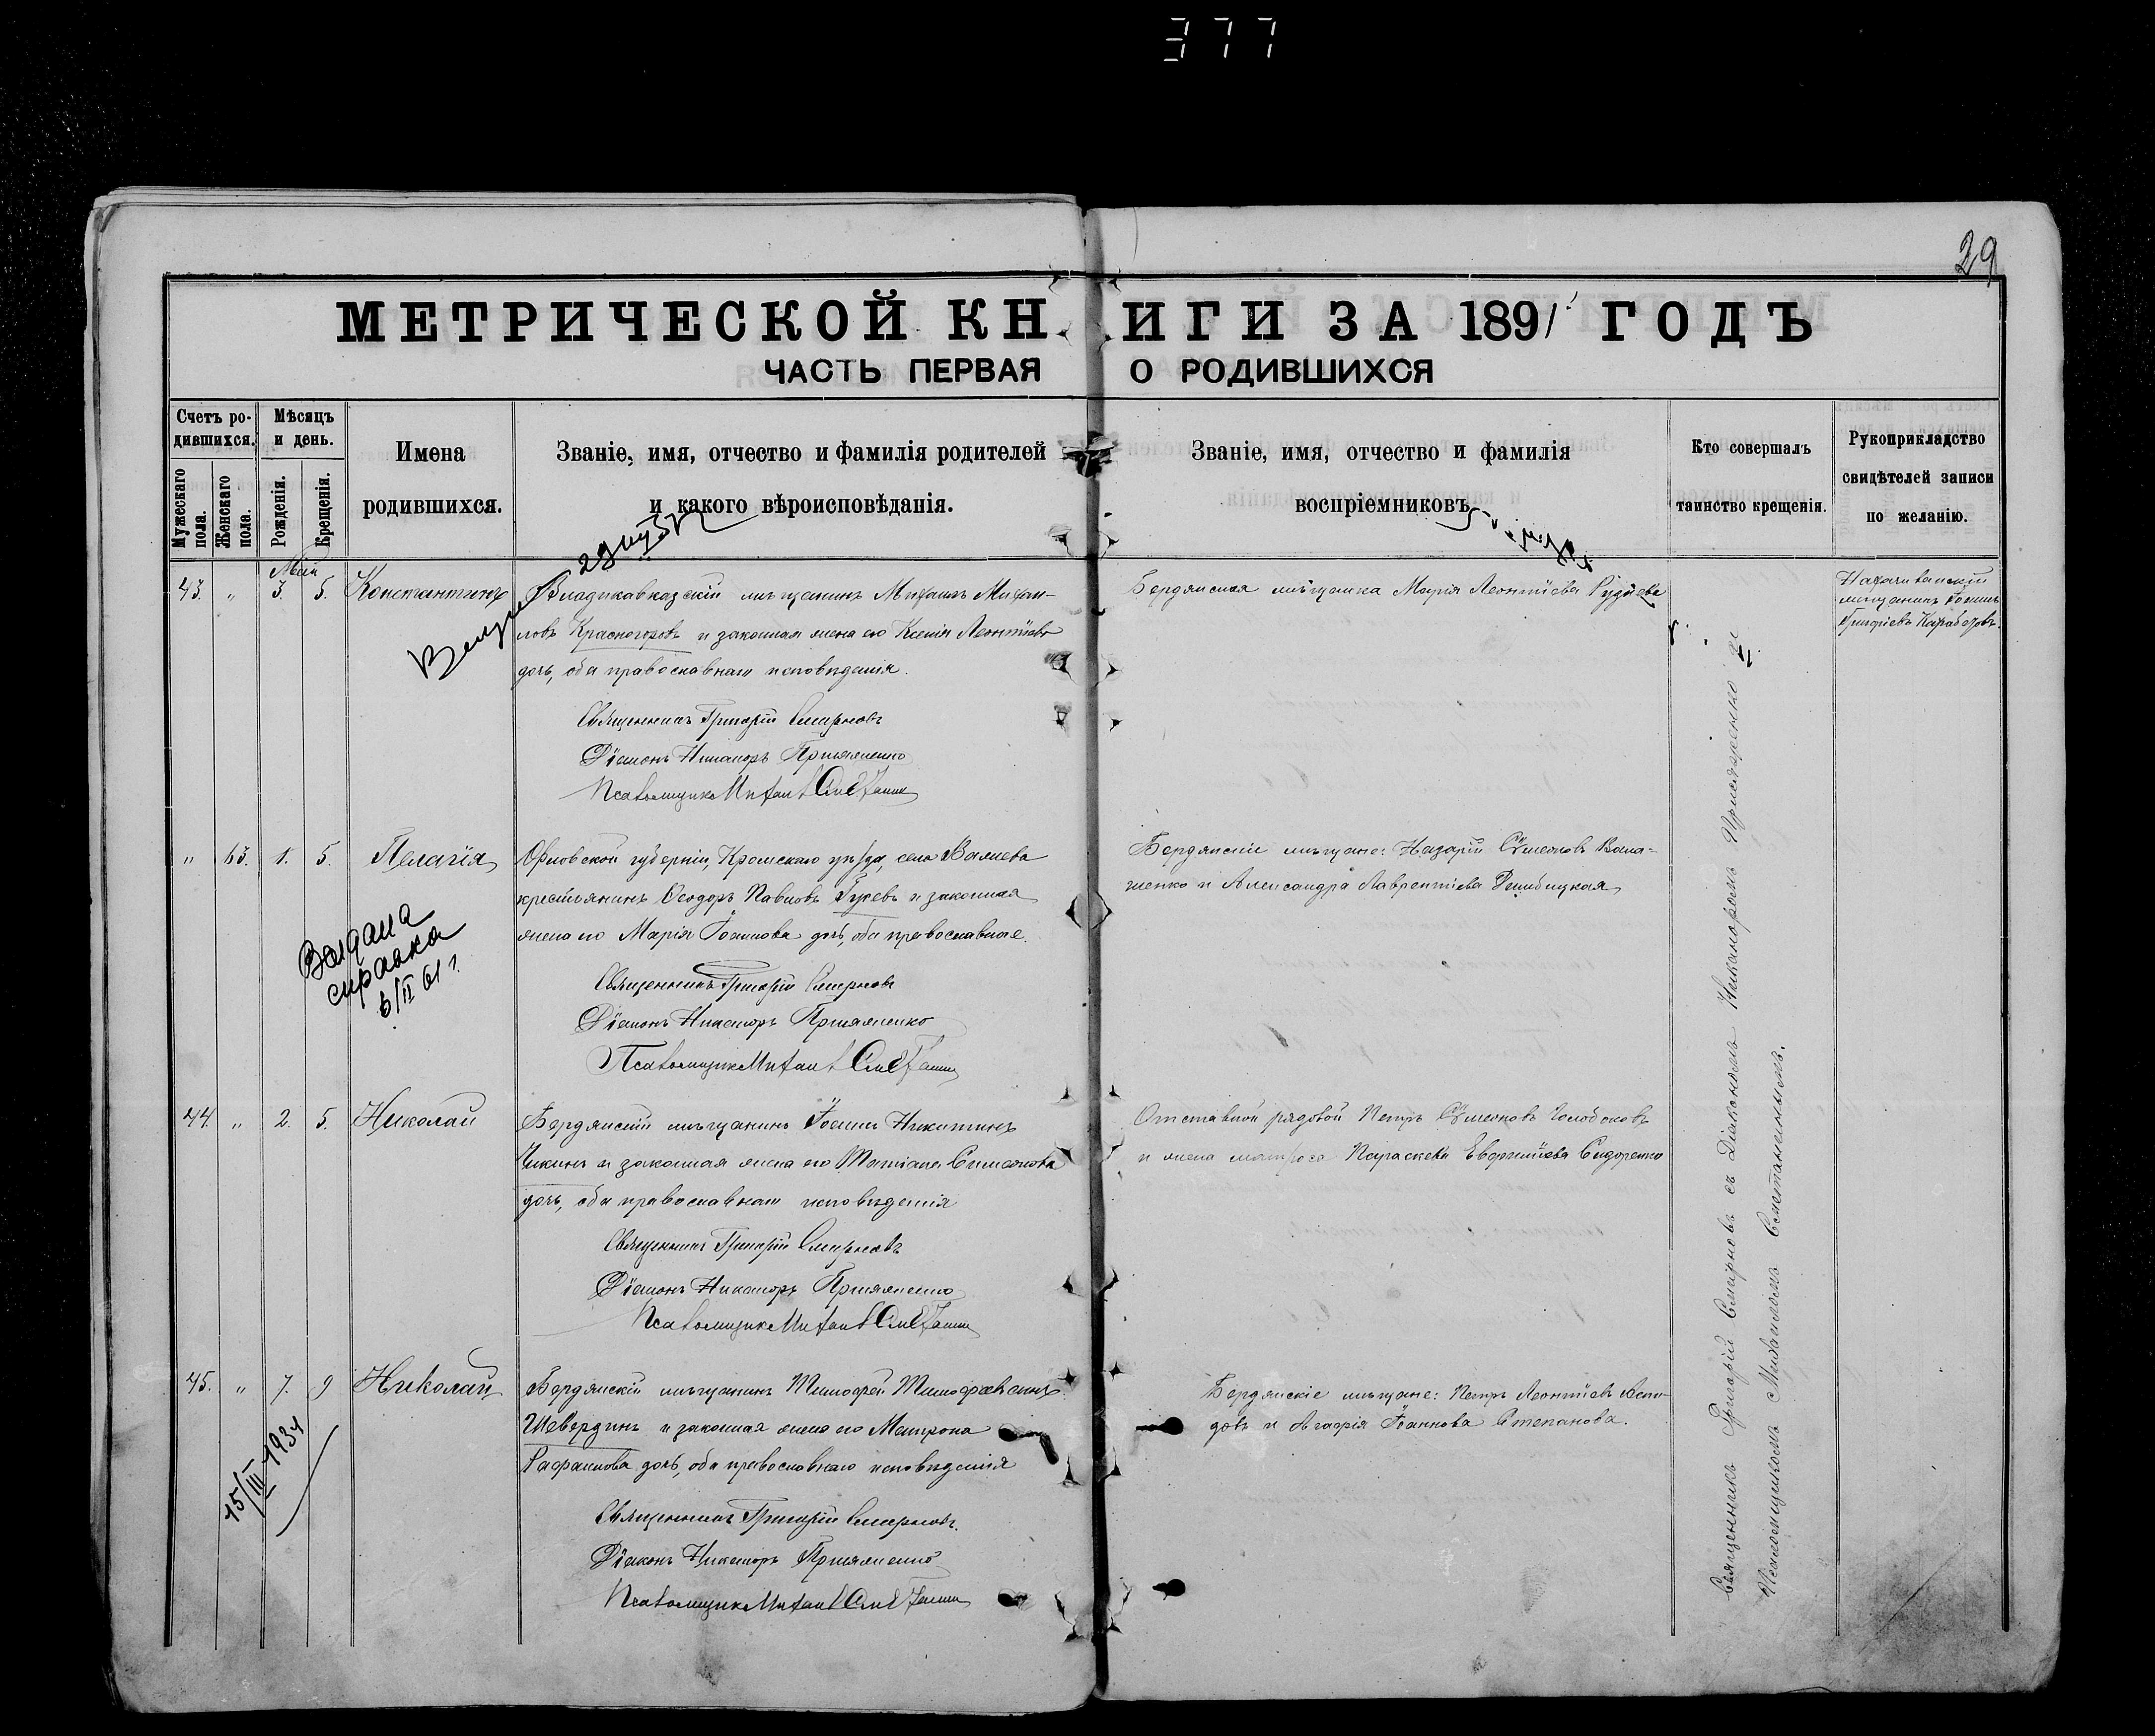 377
29
МЕТРИЧЕСКОЙ КНИГИ ЗА 1891 ГОДЪ
ЧАСТЬ ПЕРВАЯ О РОДИВШИХСЯ
Счетъ ро-
дившихся.
Мужескаго
пола.
Женскаго
пола.
Мѣсяцъ
и день.
Рожденія.
Крещенія.
Имена
родившихся.
Званіе, имя, отчество и фамилія родителей
и какого вѣроисповѣданія.
Званіе, имя, отчество и фамилія
воспріемниковъ
Кто совершалъ
таинство крещенія.
Рукоприкладство
свидѣтелей записи
по желанію.
Май
43. " 3. 5. Константинъ
Владикавказскій мѣщанинъ Михаилъ Михаи-
ловъ Красногоровъ и законная жена его Ксенія Леонтіева
дочь, оба православнаго исповѣданія.
Священникъ Григорій Смирновъ
Діаконъ Никаноръ Прияженко
Псаломщикъ Михаилъ
Бердянская мѣщанка Марія Леонтіева
мѣщанинъ
" 63. 1. 5. Пелагія
Орловской губерніи, Кромскаго уѣзда, села
крестьянинъ Ѳеодоръ Павловъ Гуревъ и законная
жена его Марія Іоаннова дочь, оба православные.
Священникъ Григорій Смирновъ
Діаконъ Никаноръ Прияженко
Псаломщикъ Михаилъ
Бердянскіе мѣщане: Назарій Сѵмеоновъ
и Александра Лаврентіева
Выдана
справка
6/II 61 г.
44. " 2. 5. Николай
Бердянскій мѣщанинъ Іоаннъ Никитинъ
Чикинъ и законная жена его Татіана Симеонова
дочь, оба православнаго исповѣданія
Священникъ Григорій Смирновъ
Діаконъ Никаноръ Прияженко
Псаломщикъ Михаилъ
Отставной рядовой Петръ Сѵмеоновъ Голобоковъ
и жена матроса Параскева Сидоренко
45. " 7. 9 Николай
Бердянскій мѣщанинъ Тимофей Тимофеевъ
Шевердинъ и законная жена его Матрона
дочь, оба православнаго исповѣданія
Священникъ Григорій Смирновъ.
Діаконъ Никаноръ Прияженко
Псаломщикъ Михаилъ
Бердянскіе мѣщане: Петръ Леонтіевъ
и Агафія Іоаннова Степанова.
15/III 1934
Священникъ Григорій Смирновъ съ Діакономъ Никаноромъ
Псаломщикомъ Михаиломъ